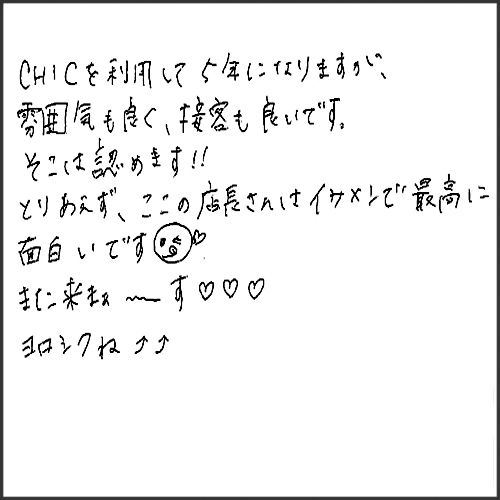 CHICを利用して5年になりますが、
雰囲気も良く、接客も良いです。
そこは認めます!!
とりあえず、ここの店長さんはイケメンで最高に
面白いです
また来まぁ〜す♡♡♡
ヨロシクね⤴⤴